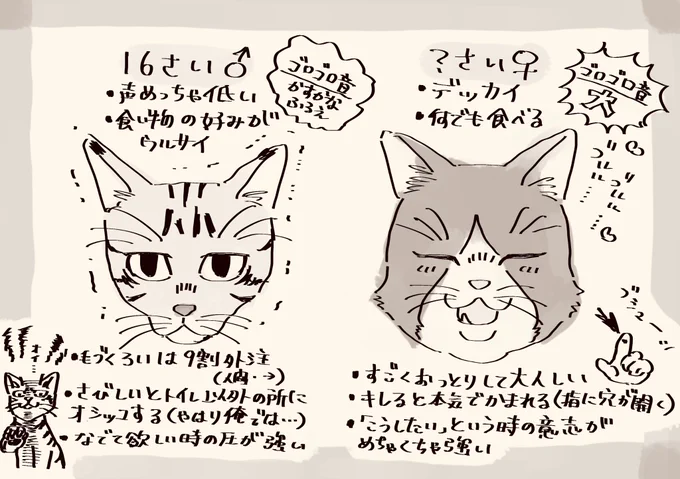 16さい♂
ゴロゴロ音
かすかな
ふるえ
・声めっちゃ低い
・食い物の好みが
ウルサイ
・毛づくろいは9割外注
・さびしいとトイレ以外の所に
オシッコする(やはり俺では…)
・なでて欲しい時の圧が強い
?さい♀
ゴロゴロ音
・デッカイ
・何でも食べる
・すごくおっとりして大人しい
・キレると本気でかまれる(指に穴が開く)
・「こうしたい」という時の意志が
めちゃくちゃ強い